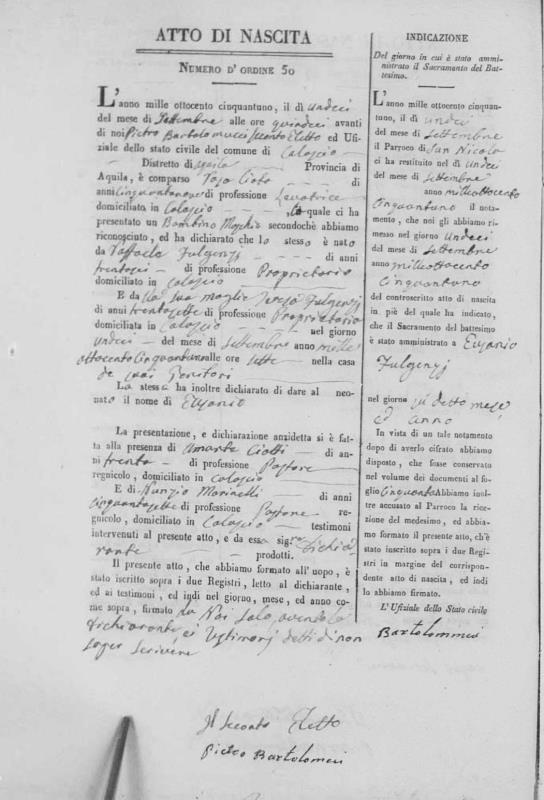 ATTO DI NASCITA
NUMERO D' ORDINE 50
L'anno mille ottocento cinquantuno, il dì undici
del mese di Settembre alle ore quindeci avanti
di noi Pietro Bartolomucci secondo Eletto ed Ufi-
ziale dello stato civile del comune di Calascio
Distretto di Provincia di
Aquila, è comparso di
anni cinquantanove di professione Levatrice
domiciliato in Calascio la quale ci ha
presentato un Bambino Maschio secondochè abbiamo
riconosciuto, ed ha dichiarato che lo stesso è nato
da Raffaele Fulgenzj di anni
trentasei di professione Proprietario
domiciliato in Calascio
E da sua moglie Fulgenzj
di anni trentasette di professione Proprietaria
domiciliata in Calascio nel giorno
undeci del mese di Settembre anno mille
ottocento cinquantuno alle ore sette nella casa
de suoi Genitori
La stessa ha inoltre dichiarato di dare al neo-
nato il nome di Eusanio
La presentazione, e dichiarazione anzidetta si è fat-
ta alla presenza di Amante Ciotti di an-
ni trenta di professione Pastore
regnicolo, domiciliato in Calascio
E di Nunzio Marinelli di anni
cinquantasette di professione Pastore re-
gnicolo, domiciliato in Calascio testimoni
intervenuti al presente atto, e da essa sigra dichia
rante prodotti.
Il presente atto, che abbiamo formato all'uopo, è
stato iscritto sopra i due Registri, letto al dichiarante,
ed ai testimoni, ed indi nel giorno, mese, ed anno co-
me sopra, firmato da Noi solo, avendo la
dichiarante, ei Testimonj detti di non
saper scrivere
Il secondo Eletto
Pietro Bartolomei
INDICAZIONE
Del giorno in cui è stato ammi-
nistrato il Sacramento del Bat-
tesimo.
L'anno mille ottocento cinquan-
tuno, il dì undeci
del mese di Settembre
il Parroco di San Nicola
ci ha restituito nel dì undeci
del mese di Settembre
anno milleottocento
cinquantuno il nota-
mento, che noi gli abbiamo ri-
messo nel giorno undeci
del mese di Settembre
anno milleottocento
cinquantuno
del controscritto atto di nascita
in piè del quale ha indicato,
che il Sacramento del battesimo
è stato amministrato a Eusanio
Fulgenzj
nel giorno sudetto mese
ed anno
In vista di un tale notamento
dopo di averlo cifrato abbiamo
disposto, che fosse conservato
nel volume dei documenti al fo-
glio cinquanta Abbiamo inol-
tre accusato al Parroco la rice-
zione del medesimo, ed abbia-
mo formato il presente atto, ch'è
stato inscritto sopra i due Regi-
stri in margine del corrispon-
dente atto di nascita, ed indi
lo abbiamo firmato.
L' Ufiziale dello Stato civile
Bartolommei